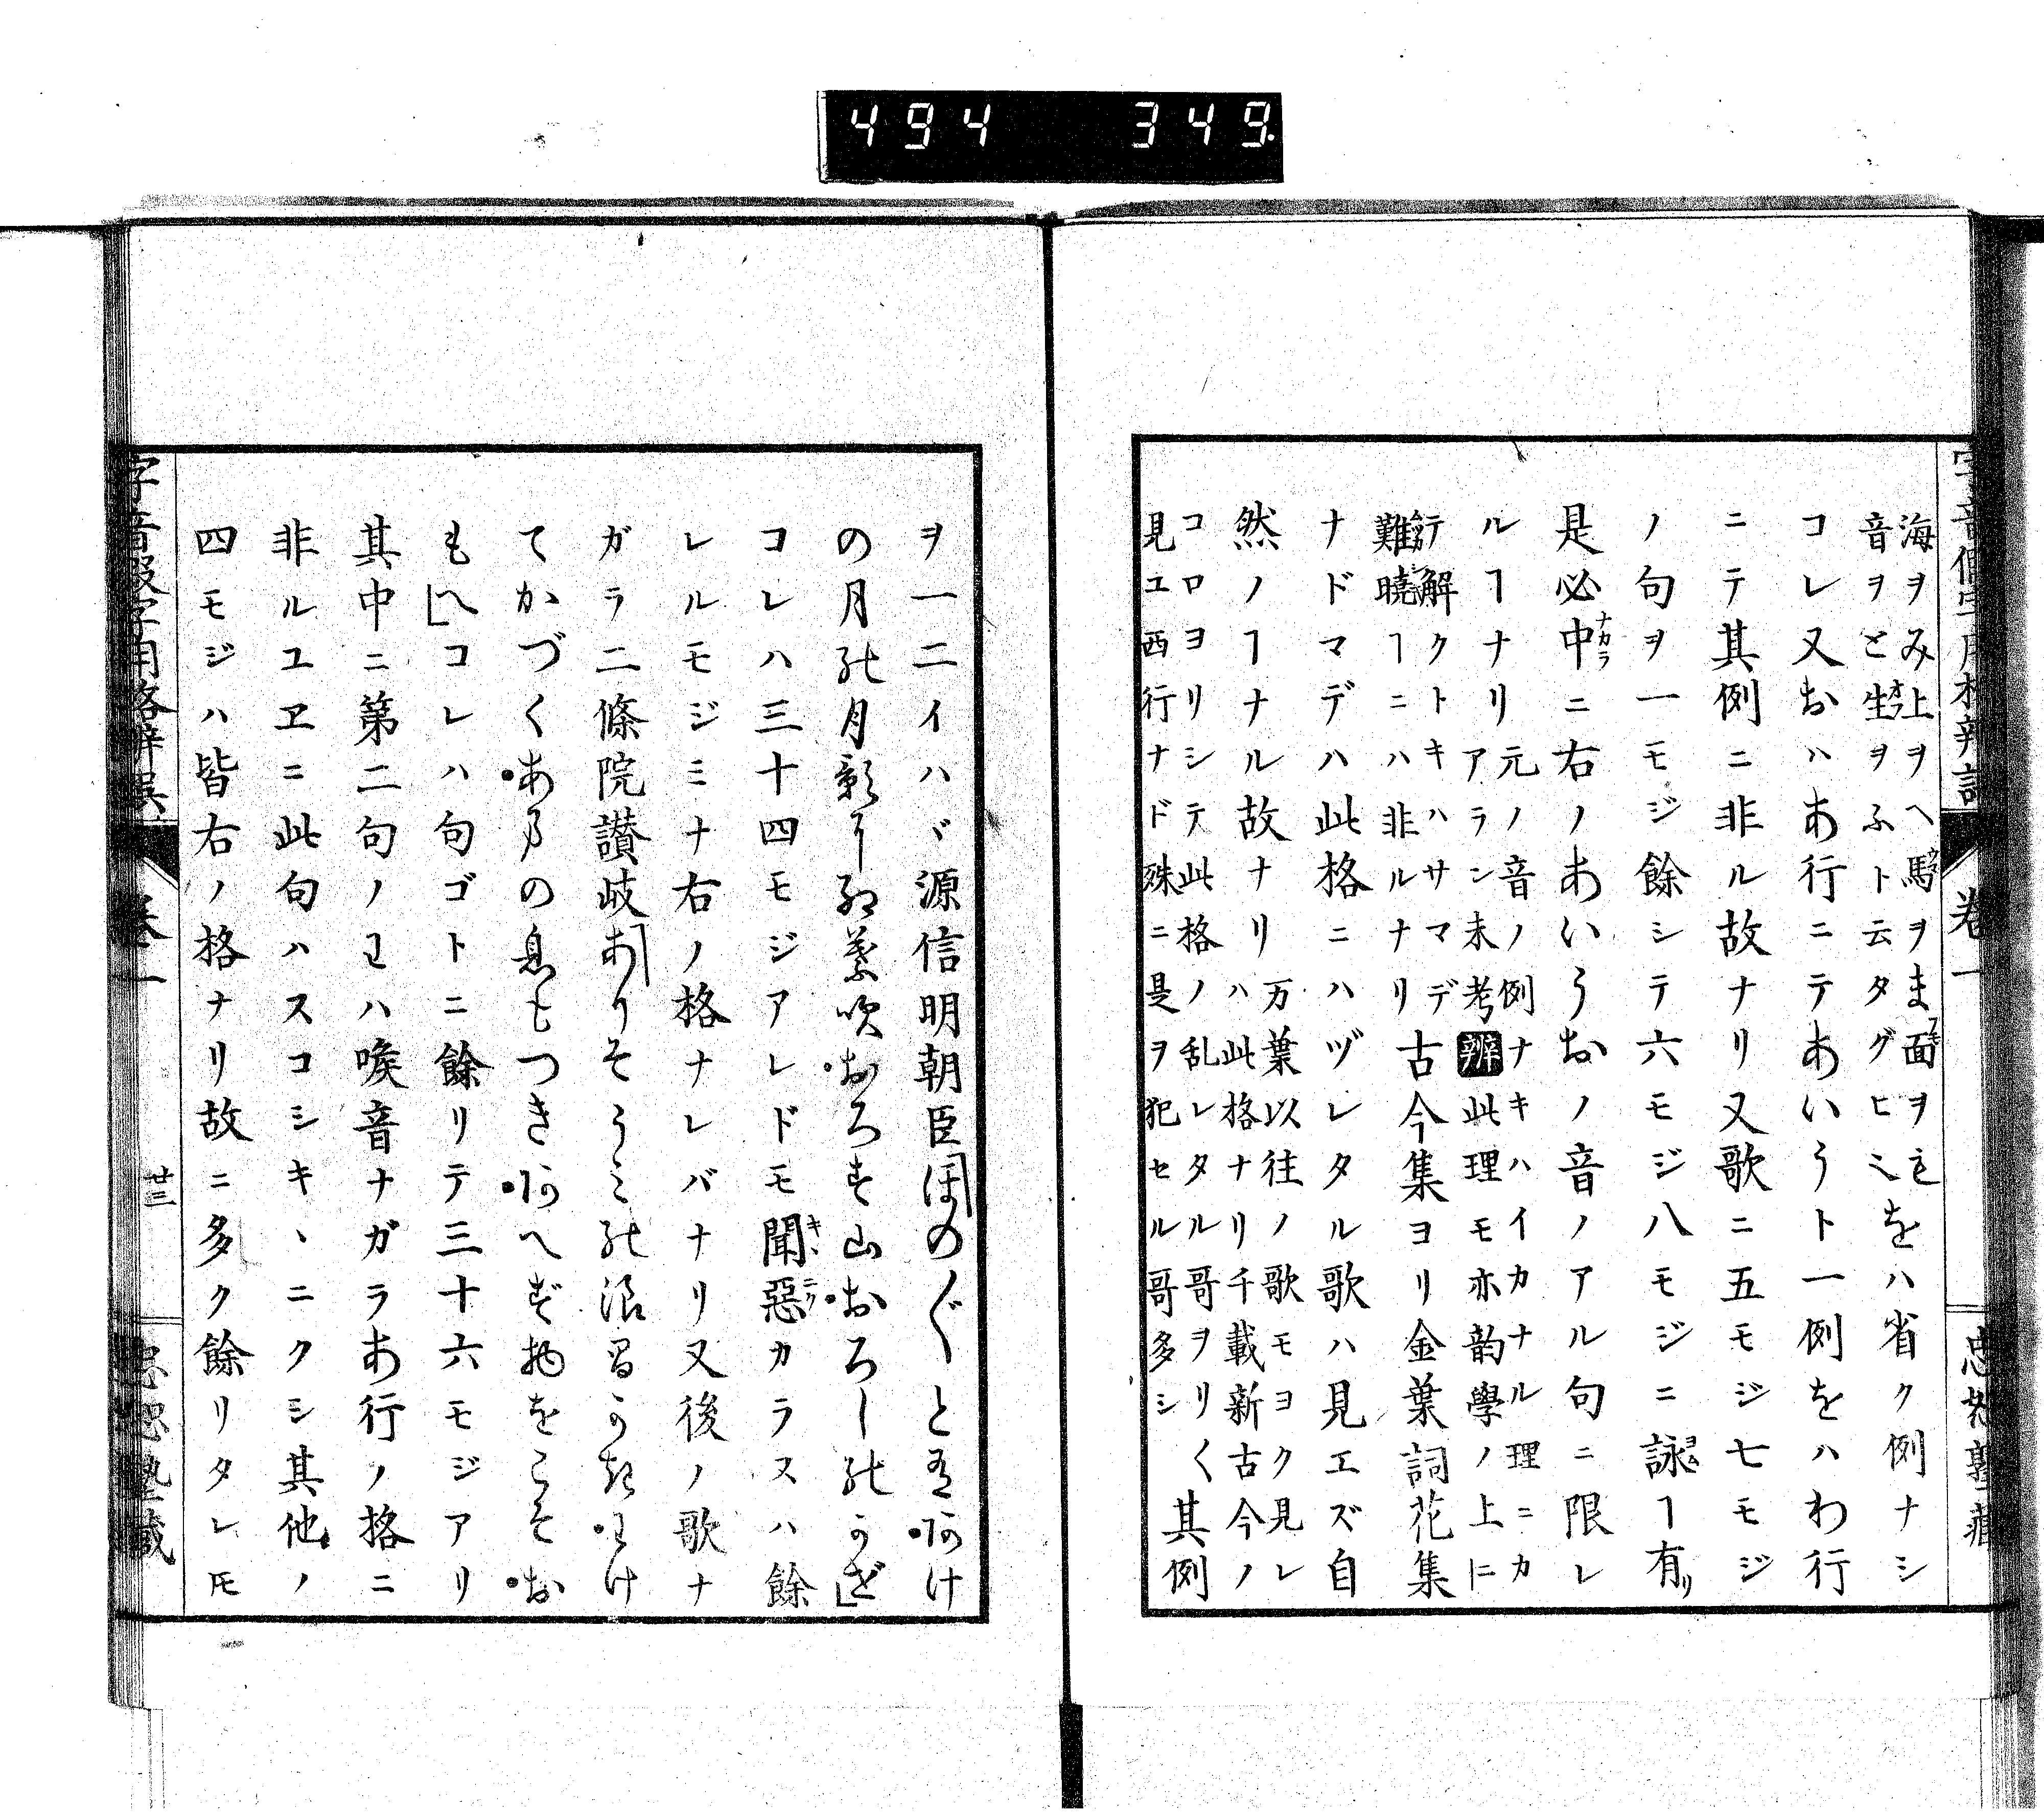 494 349
海ヲみ上ヲへ馬ヲま面ヲもをハ省ク例ナシ
音ヲと生ヲふト云タグヒ
コレ又おハあ行ニテあいうト一例をハわ行
ニテ其例ニ非ル故ナリ又歌ニ五モジ七モジ
ノ句ヲ一モジ餘シテ六モジ八モジニ詠ヿ有リ
是必中ナカラニ右ノあいうおノ音ノアル句ニ限レ
ルヿナリ元ノ音ノ例ナキハイカナル理ニカ
アラン未考辨此理モ亦韵學ノ上ニ
テ解クトキハサマデ
難曉ヿニハ非ルナリ古今集ヨリ金葉詞花集
ナドマデハ此格ニハヅレタル歌ハ見エズ自
然ノヿナル故ナリ万葉以往ノ歌モヨク見レ
ハ此格ナリ千載新古今ノ
コロヨリシテ此格ノ乱レタル哥ヲリく
見ユ西行ナド殊ニ是ヲ犯セル哥多シ其例
字音假字用格辨誤 卷一 忠恕塾藏
ヲ一二イハヾ源信明朝臣ほの〴〵と有明け
の月の月影に紅葉吹おろす山おろしの風
コレハ三十四モジアレドモ聞キヽ惡ニクカラスハ餘
レルモジミナ右ノ格ナレバナリ又後ノ歌ナ
ガラ二條院讃岐ありそうミの浪間かきわけ
てかづくあまの息もつきあへず物をこそお
もへコレハ句ゴトニ餘リテ三十六モジアリ
其中ニ第二句ノわハ喉音ナガラあ行ノ格ニ
非ルユヱニ此句ハスコシキヽニクシ其他ノ
四モジハ皆右ノ格ナリ故ニ多ク餘リタレモ
字音假字用格辨誤 卷一 廿三 忠恕塾藏